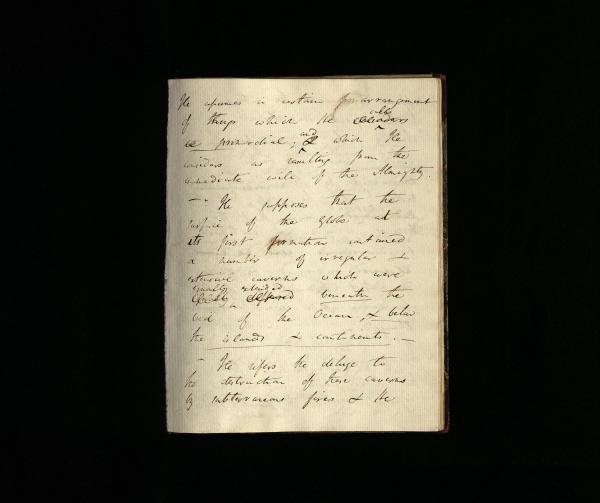 He assumes a certain prearrangement
of things which He calls
as primordial, and which He
considers as resulting from the
immediate will of the Almighty.
— He supposes that the
surface of the Globe at
its first formation contained
a number of irregular &
extensive caverns which were
equally extended beneath the
bed of the Ocean, & below
the islands & continents. —
— He refers the deluge to
the destruction of these caverns
by subterraneous fires & He